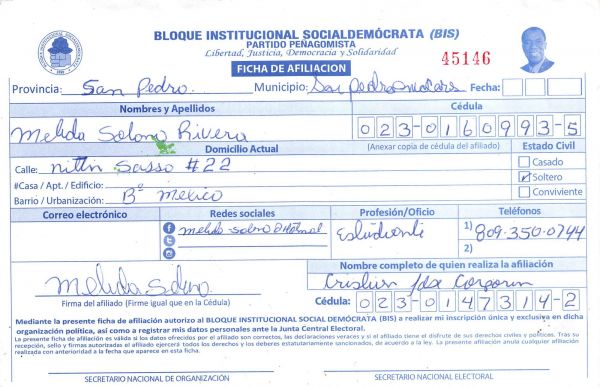 BLOQUE INSTITUCIONAL SOCIALDEMÓCRATA (BIS)
PARTIDO PEÑAGOMISTA
Libertad, Justicia, Democracia y Solidaridad
45146
FICHA DE AFILIACION
Provincia: San Pedro. Municipio: San Pedro Macoris Fecha:
Nombres y Apellidos Cédula
Melida Solano Rivera 023-0160993-5
Domicilio Actual (Anexar copia de cédula del afiliado) Estado Civil
Calle: Sasso #22 Casado
#Casa / Apt. / Edificio: Soltero
Barrio / Urbanización: Bº Mexico Conviviente
Correo electrónico Redes sociales Profesión/Oficio Teléfonos
Estudiante 1) 809-350-0744
2)
Nombre completo de quien realiza la afiliación
Melida Solano
Firma del afiliado (Firme igual que en la Cédula) Cédula: 023-0147314-2
Mediante la presente ficha de afiliación autorizo al BLOQUE INSTITUCIONAL SOCIAL DEMÓCRATA (BIS) a realizar mi inscripción única y exclusiva en dicha
organización política, así como a registrar mis datos personales ante la Junta Central Electoral.
La presente ficha de afiliación es válida si los datos ofrecidos por el afiliado son correctos, las declaraciones veraces y si el afiliado tiene el disfrute de sus derechos civiles y políticos. Tras su
recepción, sello y firmas autorizadas el afiliado ejercerá todos los derechos y los deberes estatutariamente sancionados, de acuerdo a la ley. La presente afiliación anula cualquier afiliación
realizada con anterioridad a la fecha que aparece en esta ficha.
SECRETARIO NACIONAL DE ORGANIZACIÓN SECRETARIO NACIONAL ELECTORAL